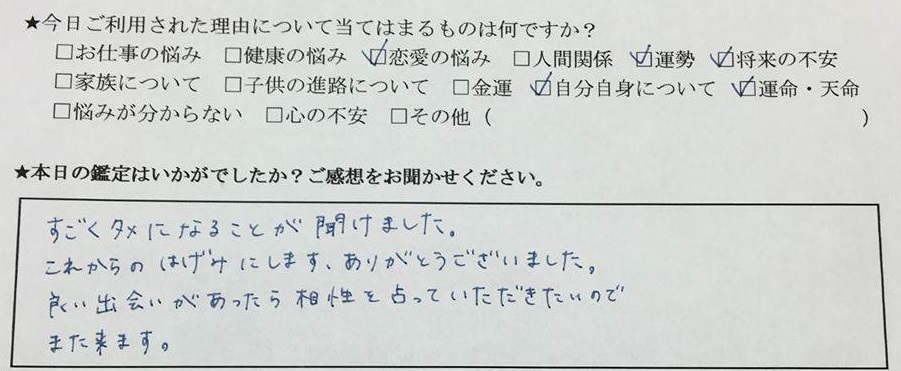 ★今日ご利用された理由について当てはまるものは何ですか？
□お仕事の悩み □健康の悩み ☑恋愛の悩み □人間関係 ☑運勢 ☑将来の不安
□家族について □子供の進路について □金運 ☑自分自身について ☑運命・天命
□悩みが分からない □心の不安 □その他（ ）
★本日の鑑定はいかがでしたか？ご感想をお聞かせください。
すごくタメになることが聞けました。
これからのはげみにします、ありがとうございました。
良い出会いがあったら相性を占っていただきたいので
また来ます。